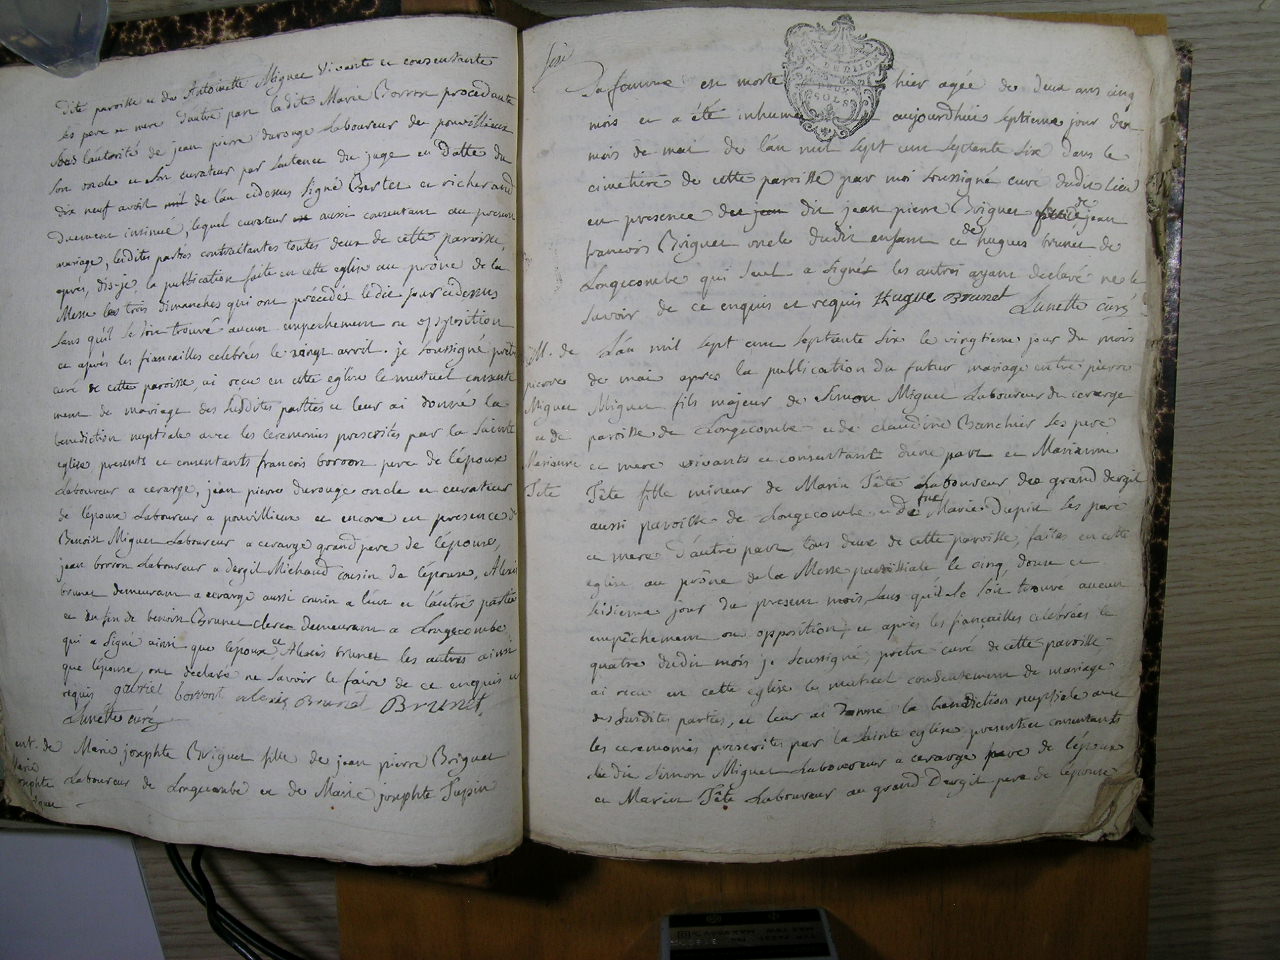 dite paroisse et de Antoinette Miguet vivante et consentante
ses pere et mere d'autre part ladite Marie Borron procedante
sous l'autorité de jean pierre durouge Laboureur de pouvillieux
son oncle et son curateur par sentence du juge en datte du
dix neuf avril de l'an cidessus signé Bertet et richerand
duement insinué, lequel curateur aussi consentant au present
mariage, lesdites parties contractantes toutes deux de cette paroisse,
apres, dis-je, la publication faite en cette eglise au prône de la
Messe les trois dimanches qui ont précédés ledit jour cidessus
sans qu'il se soit trouvé aucun empechement ou opposition
et après les fiancailles celebrées le vingt avril. je soussigné pretre
curé de cette paroisse, ai reçu en cette eglise le mutuel consente
ment de mariage des susdites parties et leur ai donné la
benediction nuptiale avec les ceremonies prescrites par la sainte
eglise presents et consentants francois borron pere de l'époux
Laboureur a cerarge, jean pierre durouge oncle et curateur
de l'épouse Laboureur a pouvillieux et encore en presence de
Benoist Miguet Laboureur a cerarge grand pere de l'epouse,
jean borron Laboureur a dergil Michaud cousin de l'épouse, Alexis
brunet demeurant a cerarge aussi cousin a l'un et l'autre parties
et du sr de benoist Brunet clerc demeurant a Longecombe
qui a signé ainsi que l'époux et Alexis brunet les autres ainsi
que l'épouse, ont declaré ne savoir le faire de ce enquis et
requis gabriel borront alexis Brunet BRUNET.
Lunette curé
ent. de Marie josephte Briguet fille de jean pierre Briguet
Marie josephte Laboureur de Longecombe et de Marie josephte Tupin
sa femme est morte hier agée de deux ans cinq
mois et a été inhumée aujourdhui septieme jour du
mois de mai de l'an mil sept cent septante six dans le
cimetière de cette paroisse par moi soussigné curé dudit lieu
en presence dudit jean pierre Briguet de jean
francois Briguet oncle dudit enfant et de hugues brunet de
Longecombe qui seul a signé les autres ayant declaré ne le
savoir de ce enquis et requis Hugue Brunet Lunette curé
M. de
pierre
Miguet
et de
Marianne
Tête
L'an mil sept cent septante six le vingtieme jour du mois
de mai apres la publication du futur mariage entre pierre
Miguet fils majeur de Simon Miguet Laboureur de cerarge
paroisse de Longecombe et de claudine Banchier ses pere
et mere vivants et consentant d'une part et Marianne
Tête fille mineur de Marin Tête Laboureur du grand dergil
aussi paroisse de Longecombe et de fue Marie Dupin ses pere
et mere d'autre part tous deux de cette paroisse, faites en cette
eglise au prône de la Messe paroissiale le cinq, douze et
seizieme jour du present mois, sans qu'il se soit trouvé aucun
empêchement ou opposition, et après les fiancailles celebrées le
quatre dudit mois je soussigné, pretre curé de cette paroisse
ai recu en cette eglise le mutuel consentement de mariage
des susdites parties, et leur ai donné la benediction nuptiale avec
les ceremonies prescrites par la sainte eglise presents et consentants
ledit Simon Miguet Laboureur a cerarge pere de l'époux
et Marin Tête Laboureur au grand Dergil pere de l'épouse